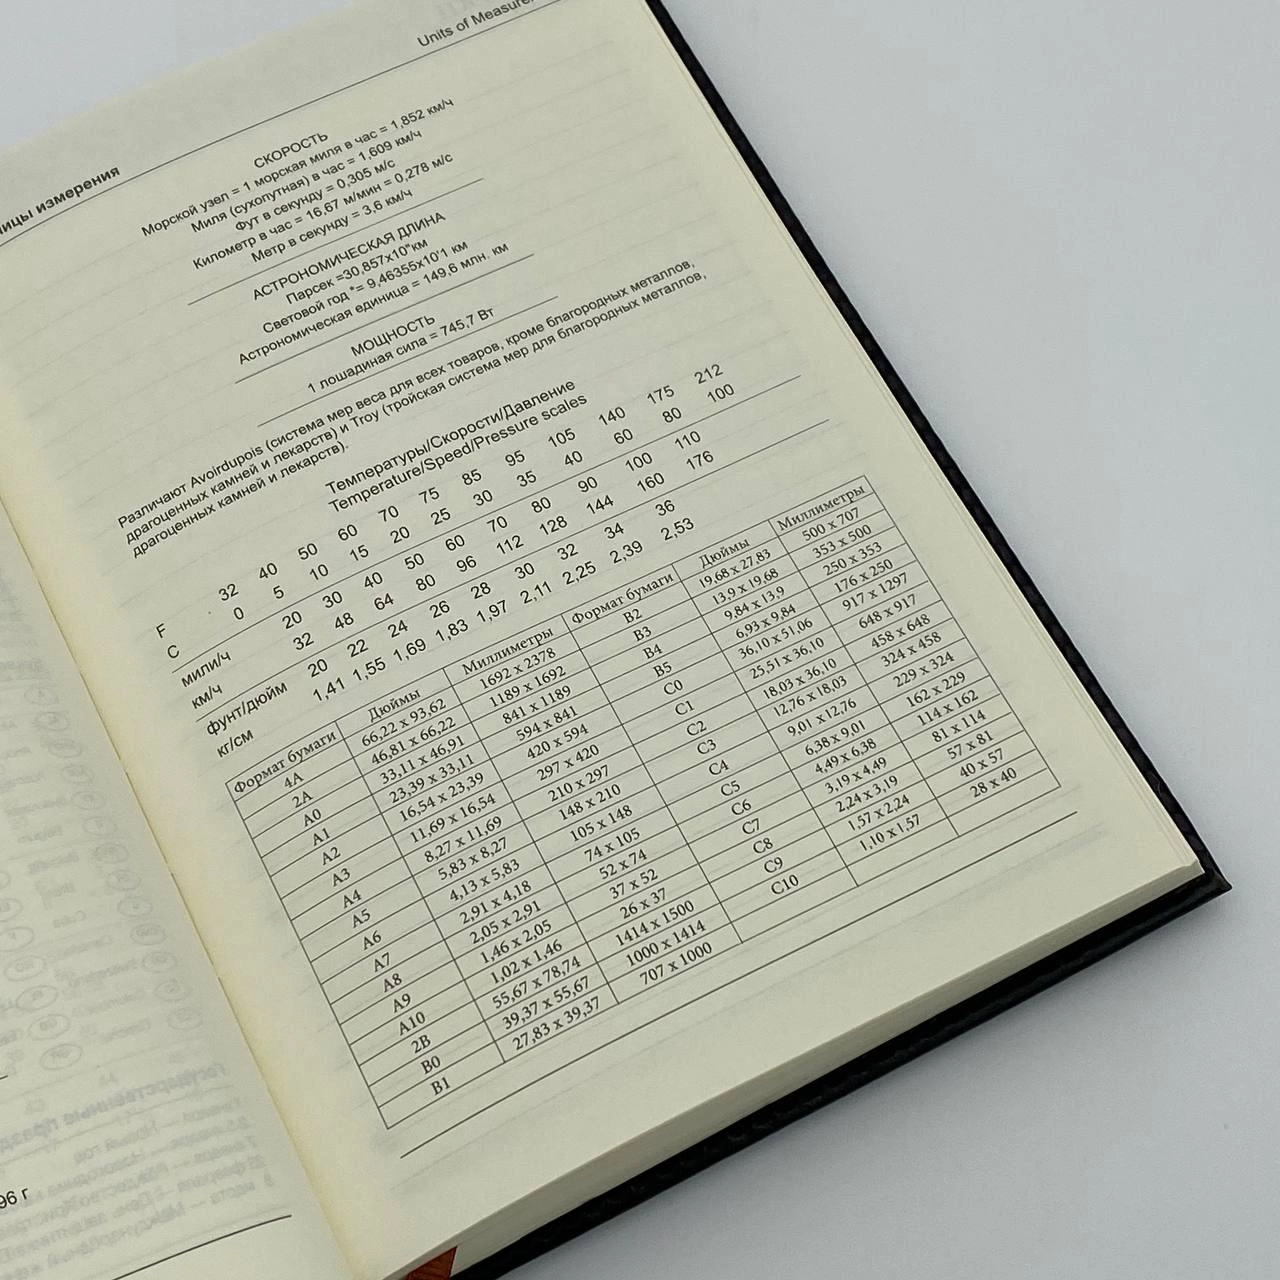 ницы измерения
Units of Measure
СКОРОСТЬ
Морской узел = 1 морская миля в час = 1,852 км/ч
Миля (сухопутная) в час = 1,609 км/ч
Фут в секунду = 0,305 м/с
Километр в час = 16,67 м/мин = 0,278 м/с
Метр в секунду = 3,6 км/ч
АСТРОНОМИЧЕСКАЯ ДЛИНА
Парсек =30,857х10"км
Световой год *= 9,46355х10'1 км
Астрономическая единица = 149,6 млн. км
МОЩНОСТЬ
1 лошадиная сила = 745,7 Вт
Различают Avoirdupois (система мер веса для всех товаров, кроме благородных металлов,
драгоценных камней и лекарств) и Troy (тройская система мер для благородных металлов,
драгоценных камней и лекарств).
Температуры/Скорости/Давление
Temperature/Speed/Pressure scales
F 32 40 50 60 70 75 85 95 105 140 175 212
C 0 5 10 15 20 25 30 35 40 60 80 100
мили/ч 20 30 40 50 60 70 80 90 100 110
км/ч 32 48 64 80 96 112 128 144 160 176
фунт/дюйм 20 22 24 26 28 30 32 34 36
кг/см 1,41 1,55 1,69 1,83 1,97 2,11 2,25 2,39 2,53
Формат бумаги Дюймы Миллиметры Формат бумаги Дюймы Миллиметры
4A 66,22 x 93,62 1692 x 2378 B2 19,68 x 27,83 500 x 707
2A 46,81 x 66,22 1189 x 1692 B3 13,9 x 19,68 353 x 500
A0 33,11 x 46,91 841 x 1189 B4 9,84 x 13,9 250 x 353
A1 23,39 x 33,11 594 x 841 B5 6,93 x 9,84 176 x 250
A2 16,54 x 23,39 420 x 594 C0 36,10 x 51,06 917 x 1297
A3 11,69 x 16,54 297 x 420 C1 25,51 x 36,10 648 x 917
A4 8,27 x 11,69 210 x 297 C2 18,03 x 36,10 458 x 648
A5 5,83 x 8,27 148 x 210 C3 12,76 x 18,03 324 x 458
A6 4,13 x 5,83 105 x 148 C4 9,01 x 12,76 229 x 324
A7 2,91 x 4,18 74 x 105 C5 6,38 x 9,01 162 x 229
A8 2,05 x 2,91 52 x 74 C6 4,49 x 6,38 114 x 162
A9 1,46 x 2,05 37 x 52 C7 3,19 x 4,49 81 x 114
A10 1,02 x 1,46 26 x 37 C8 2,24 x 3,19 57 x 81
2B 55,67 x 78,74 1414 x 1500 C9 1,57 x 2,24 40 x 57
B0 39,37 x 55,67 1000 x 1414 C10 1,10 x 1,57 28 x 40
B1 27,83 x 39,37 707 x 1000
96 г